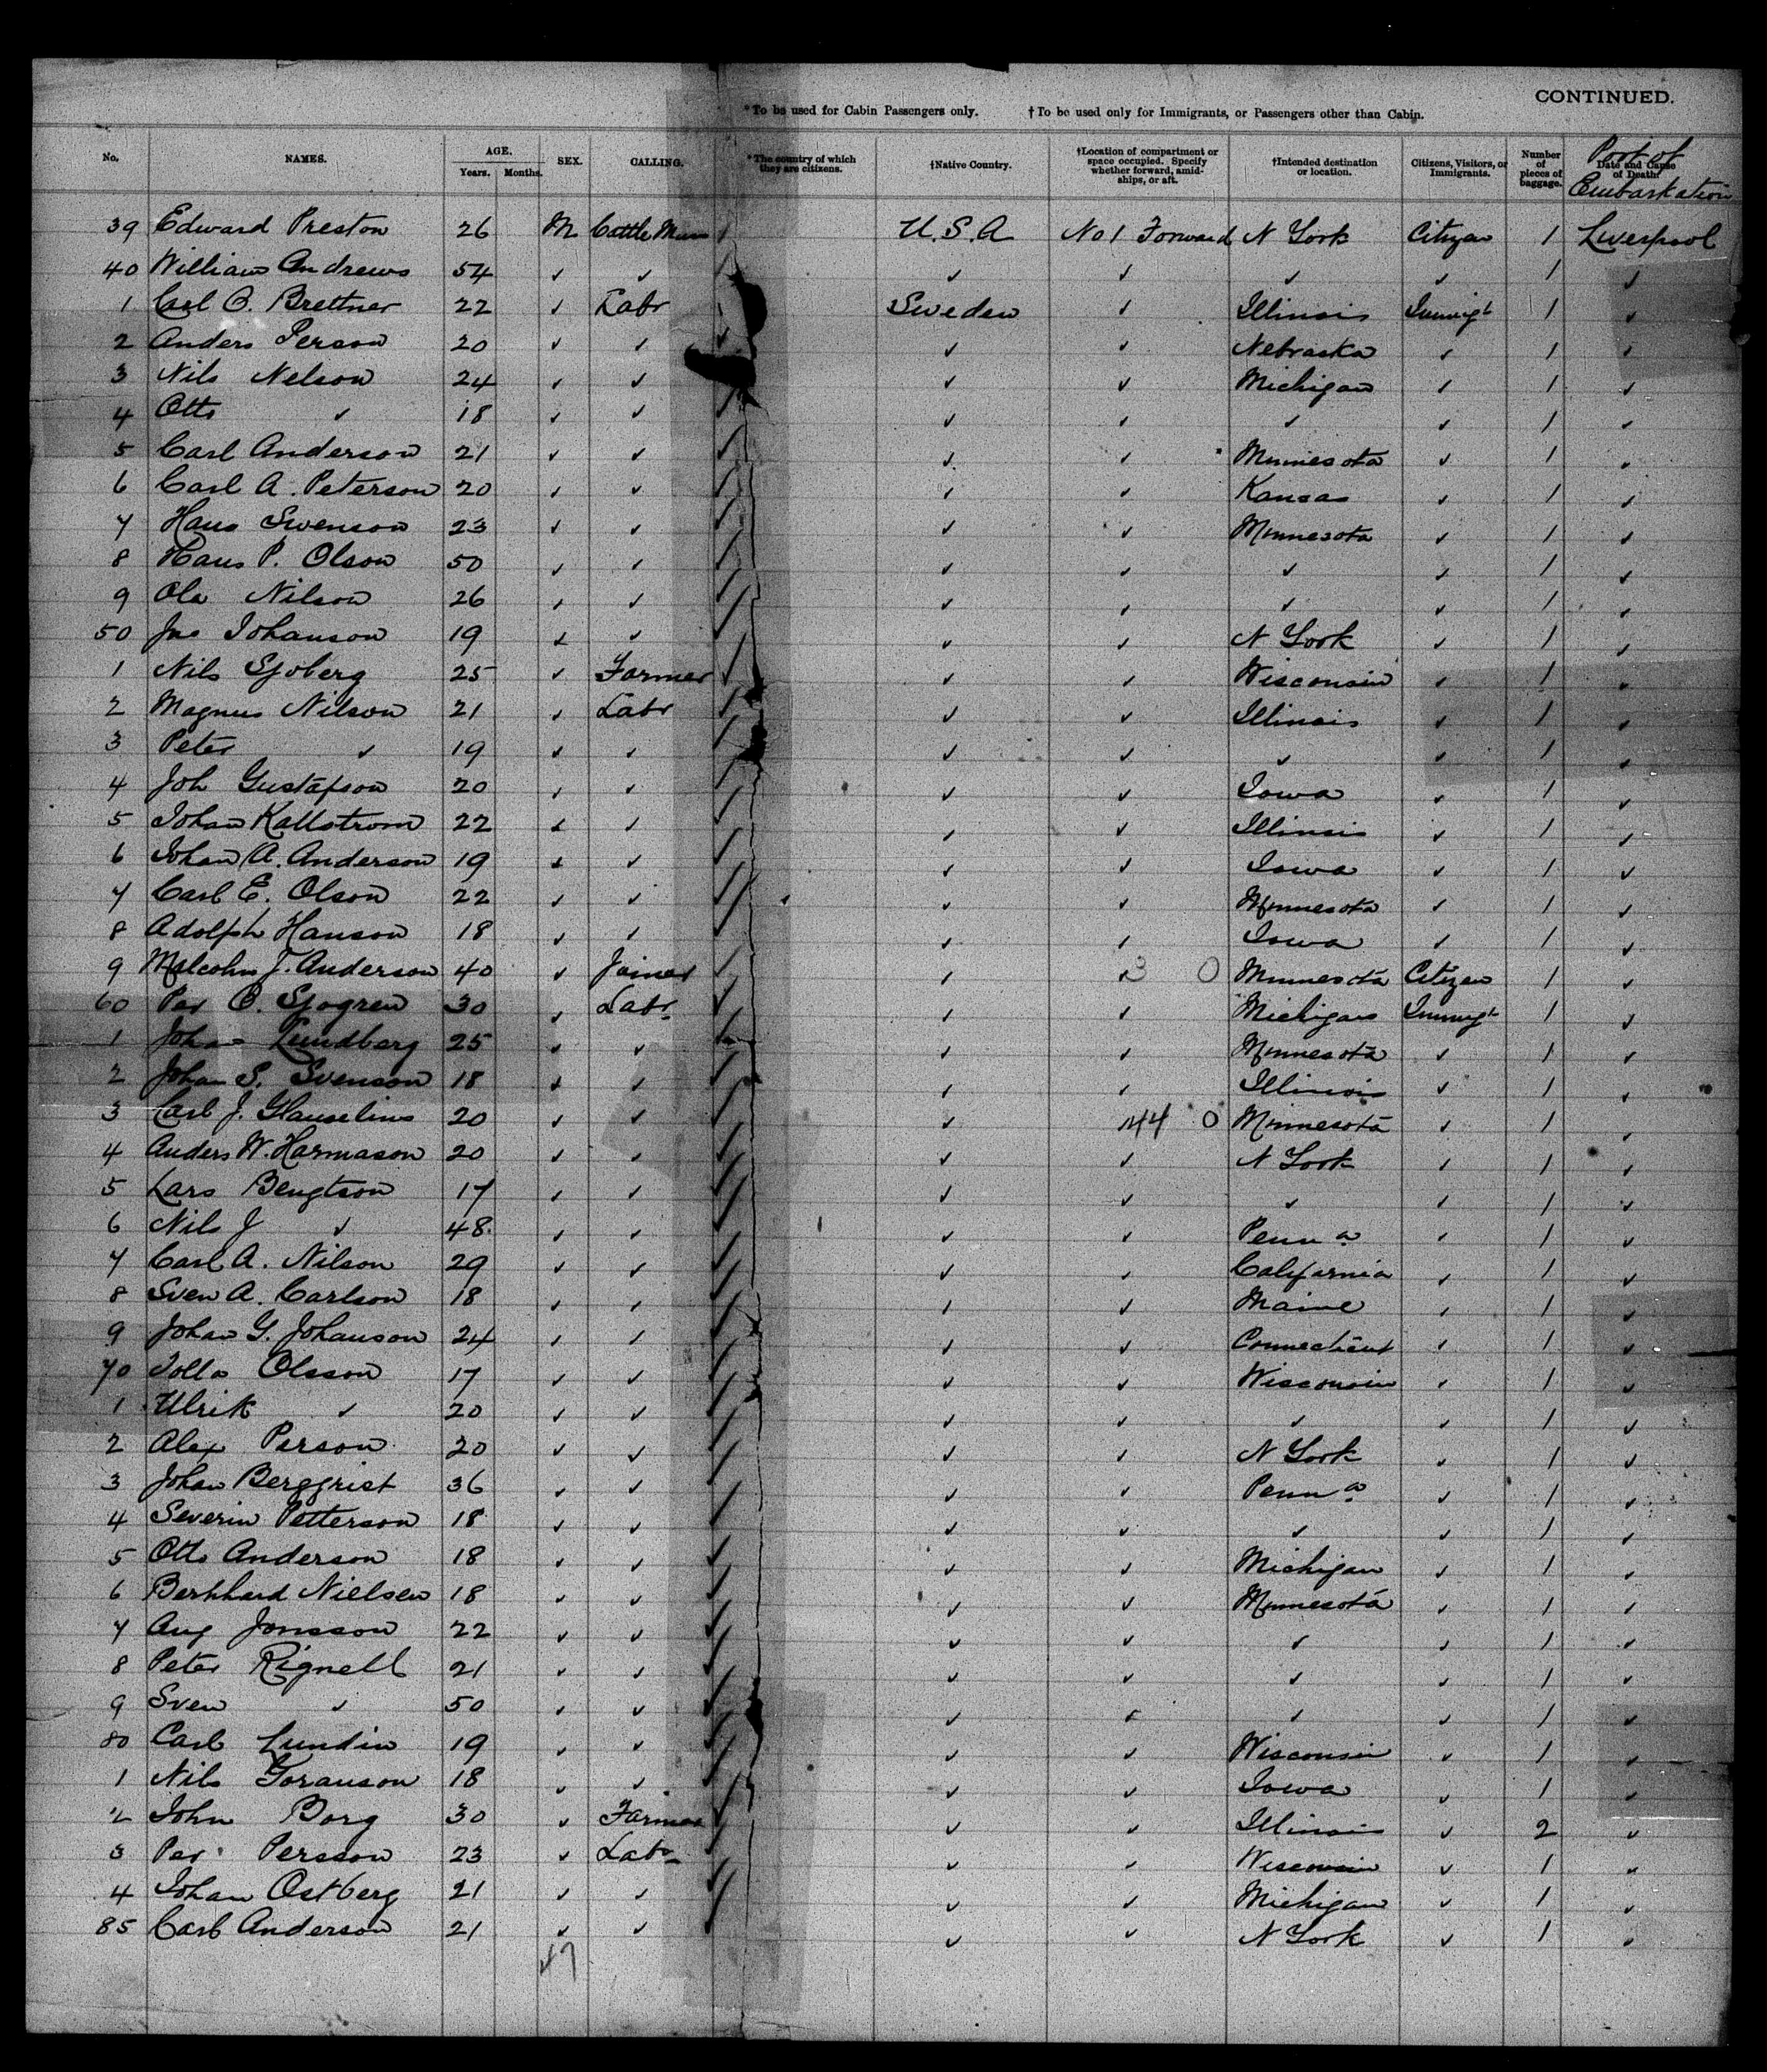 CONTINUED.
*To be used for Cabin Passengers only. †To be used only for Immigrants, or Passengers other than Cabin.
No. NAMES. AGE. Years. Months. SEX. CALLING. *The country of which they are citizens. †Native Country. †Location of compartment or space occupied. Specify whether forward, amidships, or aft. †Intended destination or location. Citizens, Visitors, or Immigrants. Number of pieces of baggage. Date and Cause of Death. Port of Embarkation
39 Edward Preston 26 M Cattle Man U.S.A No 1 Forward N York Citizen 1 Liverpool
40 William Andrews 54 ✓ ✓ ✓ ✓ ✓ ✓ 1 ✓
1 Carl O. Brettner 22 ✓ Labr Sweden ✓ Illinois Immigt 1 ✓
2 Anders Person 20 ✓ ✓ ✓ ✓ Nebraska ✓ 1 ✓
3 Nils Nelson 24 ✓ ✓ ✓ ✓ Michigan ✓ 1 ✓
4 Otto ✓ 18 ✓ ✓ ✓ ✓ ✓ ✓ 1 ✓
5 Carl Anderson 21 ✓ ✓ ✓ ✓ Minnesota ✓ 1 ✓
6 Carl A. Peterson 20 ✓ ✓ ✓ ✓ Kansas ✓ 1 ✓
7 Hans Swenson 23 ✓ ✓ ✓ ✓ Minnesota ✓ 1 ✓
8 Hans P. Olson 50 ✓ ✓ ✓ ✓ ✓ ✓ 1 ✓
9 Ola Nilson 26 ✓ ✓ ✓ ✓ ✓ ✓ 1 ✓
50 Jno Johanson 19 ✓ ✓ ✓ ✓ N York ✓ 1 ✓
1 Nils Sjoberg 25 ✓ Farmer ✓ ✓ Wisconsin ✓ 1 ✓
2 Magnus Nilson 21 ✓ Labr ✓ ✓ Illinois ✓ 1 ✓
3 Peter ✓ 19 ✓ ✓ ✓ ✓ ✓ ✓ 1 ✓
4 Joh Gustafson 20 ✓ ✓ ✓ ✓ Iowa ✓ 1 ✓
5 Johan Kallstrom 22 ✓ ✓ ✓ ✓ Illinois ✓ 1 ✓
6 Johan A. Anderson 19 ✓ ✓ ✓ ✓ Iowa ✓ 1 ✓
7 Carl E. Olson 22 ✓ ✓ ✓ ✓ Minnesota ✓ 1 ✓
8 Adolph Hanson 18 ✓ ✓ ✓ ✓ Iowa ✓ 1 ✓
9 Malcohm J. Anderson 40 ✓ Joiner ✓ 3 0 Minnesota Citizen 1 ✓
60 Per O. Sjogren 30 ✓ Labr ✓ ✓ Michigan Immigt 1 ✓
1 Johan Lundberg 25 ✓ ✓ ✓ ✓ Minnesota ✓ 1 ✓
2 Johan S. Svenson 18 ✓ ✓ ✓ ✓ Illinois ✓ 1 ✓
3 Carl J. Glauselius 20 ✓ ✓ ✓ 44 0 Minnesota ✓ 1 ✓
4 Anders W. Harmason 20 ✓ ✓ ✓ ✓ N York ✓ 1 ✓
5 Lars Bengtson 17 ✓ ✓ ✓ ✓ ✓ ✓ 1 ✓
6 Nils J ✓ 48 ✓ ✓ ✓ ✓ Penna ✓ 1 ✓
7 Carl A. Nilson 29 ✓ ✓ ✓ ✓ California ✓ 1 ✓
8 Sven A. Carlson 18 ✓ ✓ ✓ ✓ Maine ✓ 1 ✓
9 Johan G. Johanson 24 ✓ ✓ ✓ ✓ Connecticut ✓ 1 ✓
70 Olsson 17 ✓ ✓ ✓ ✓ Wisconsin ✓ 1 ✓
1 Ulrik ✓ 20 ✓ ✓ ✓ ✓ ✓ ✓ 1 ✓
2 Alex Person 20 ✓ ✓ ✓ ✓ N York ✓ 1 ✓
3 Johan Bergqrist 36 ✓ ✓ ✓ ✓ Penna ✓ 1 ✓
4 Severin Petterson 18 ✓ ✓ ✓ ✓ ✓ ✓ 1 ✓
5 Otto Anderson 18 ✓ ✓ ✓ ✓ Michigan ✓ 1 ✓
6 Bernhard Nielsen 18 ✓ ✓ ✓ ✓ Minnesota ✓ 1 ✓
7 Aug Jonsson 22 ✓ ✓ ✓ ✓ ✓ ✓ 1 ✓
8 Peter Rignell 21 ✓ ✓ ✓ ✓ ✓ ✓ 1 ✓
9 Sven ✓ 50 ✓ ✓ ✓ ✓ ✓ ✓ 1 ✓
80 Carl Lundin 19 ✓ ✓ ✓ ✓ Wisconsin ✓ 1 ✓
1 Nils Goranson 18 ✓ ✓ ✓ ✓ Iowa ✓ 1 ✓
2 John Borg 30 ✓ Farmer ✓ ✓ Illinois ✓ 2 ✓
3 Per Persson 23 ✓ Labr ✓ ✓ Wisconsin ✓ 1 ✓
4 Johan Ostberg 21 ✓ ✓ ✓ ✓ Michigan ✓ 1 ✓
85 Carl Anderson 21 ✓ ✓ ✓ ✓ N York ✓ 1 ✓
47